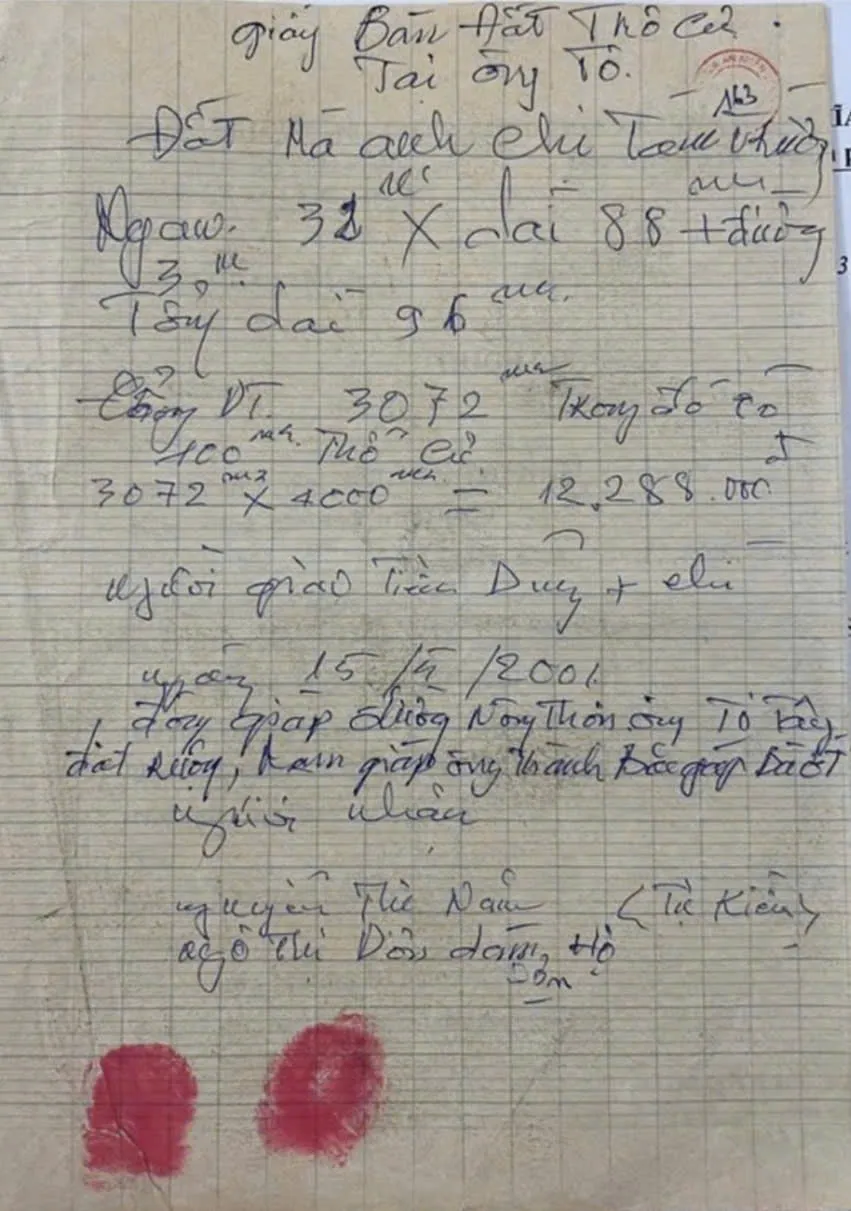 giấy Bán đất Thổ Cư.
Tại ông Tô.
163
Đất Mà anh chị
Ngan. 32 m X dài 88 m + đường
3,m
Tổng dài 96 m.
Tổng DT. 3072 m2 Trong đó có
400 m2. Thổ Cư
3072 m2 X 4000 = 12.288.000 đ
người giao Tiền Duy + chi
ngày 15/5/2001
đông giáp đường Nông Thôn ông Tô Tây
đất ruộng, Nam giáp ông Thành Bắc giáp
người nhận
nguyễn Thị Năm (Tư Kiên)
ngô Thị Dôn dấm, Hộ
Dôn
3